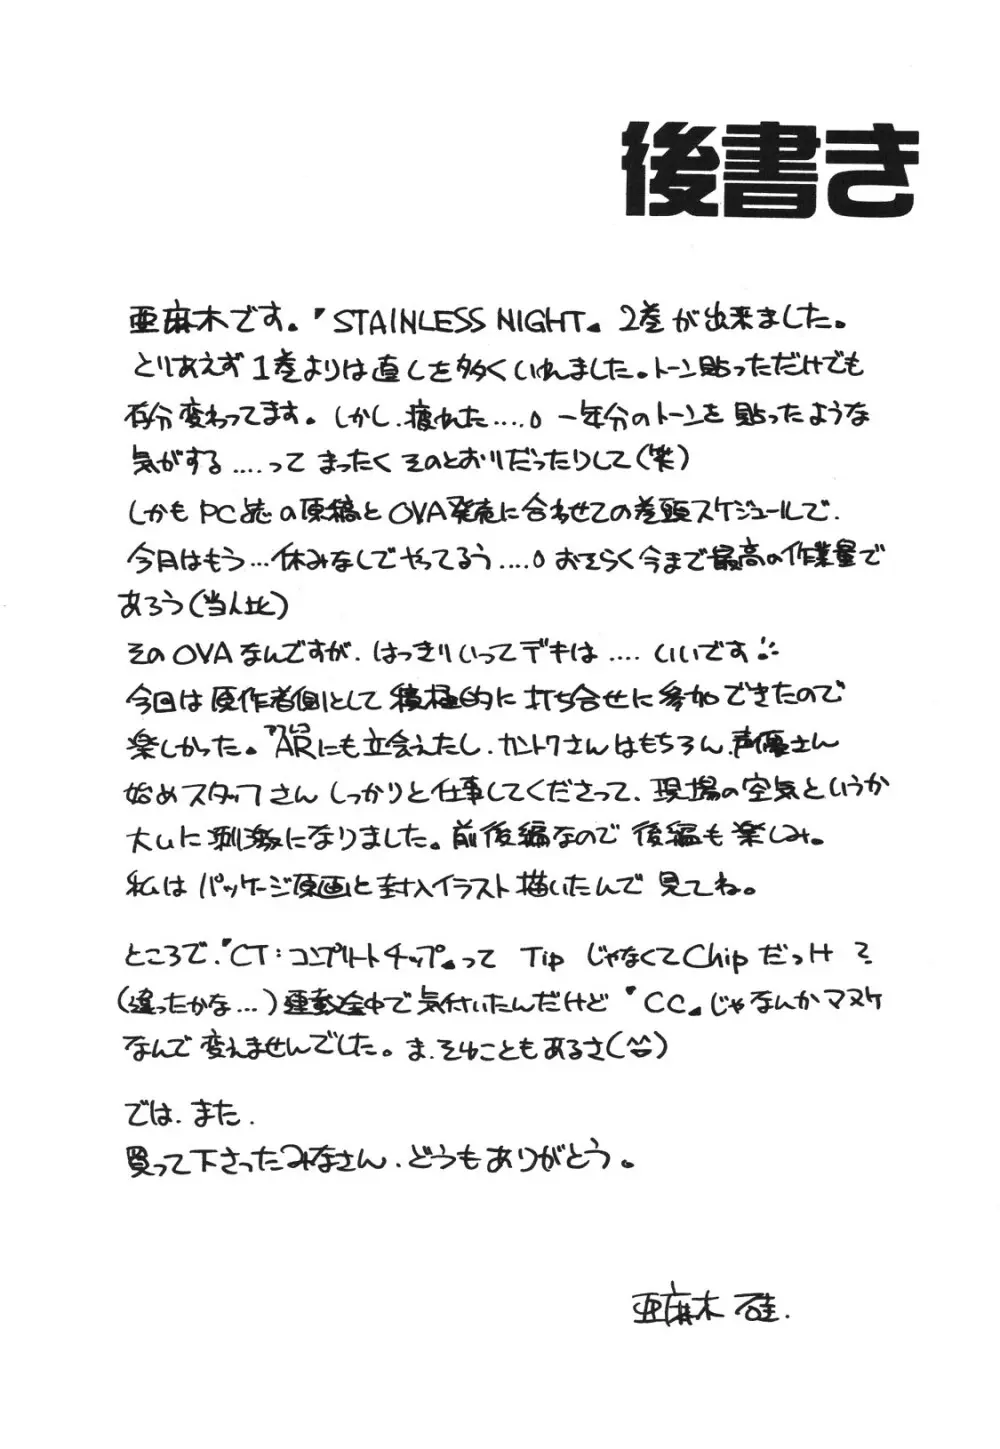 後書き
亜麻木です。『STAINLESS NIGHT』2巻が出来ました。
とりあえず1巻よりは直しを多くいれました。トーン貼っただけでも
存分変わってます。しかし、疲れた....。一年分のトーンを貼ったような
気がする....ってまったくそのとおりだったりして(笑)
しかもPC誌の原稿とOVA発売に合わせての巻頭スケジュールで、
今月はもう...休みなしでやってるう....。おそらく今まで最高の作業量で
あろう(当人比)
そのOVAなんですが、はっきりいってデキは....いいです!!
今回は原作者側として積極的に打ち合せに参加できたので
楽しかった。アフレコARにも立会えたし、カントクさんはもちろん、声優さん
始めスタッフさんしっかりと仕事してくださって、現場の空気というか
大いに刺激になりました。前後編なので後編も楽しみ。
私はパッケージ原画と封入イラスト描いたんで見てね。
ところで、『CT:コンプリートチップ』ってTipじゃなくてChipだっけ?
(違ったかな...)連載途中で気付いたんだけど『CC』じゃなんかマヌケ
なんで変えませんでした。ま、そんなこともあるさ(^^)
では、また、
買って下さったみなさん、どうもありがとう。
亜麻木硅.